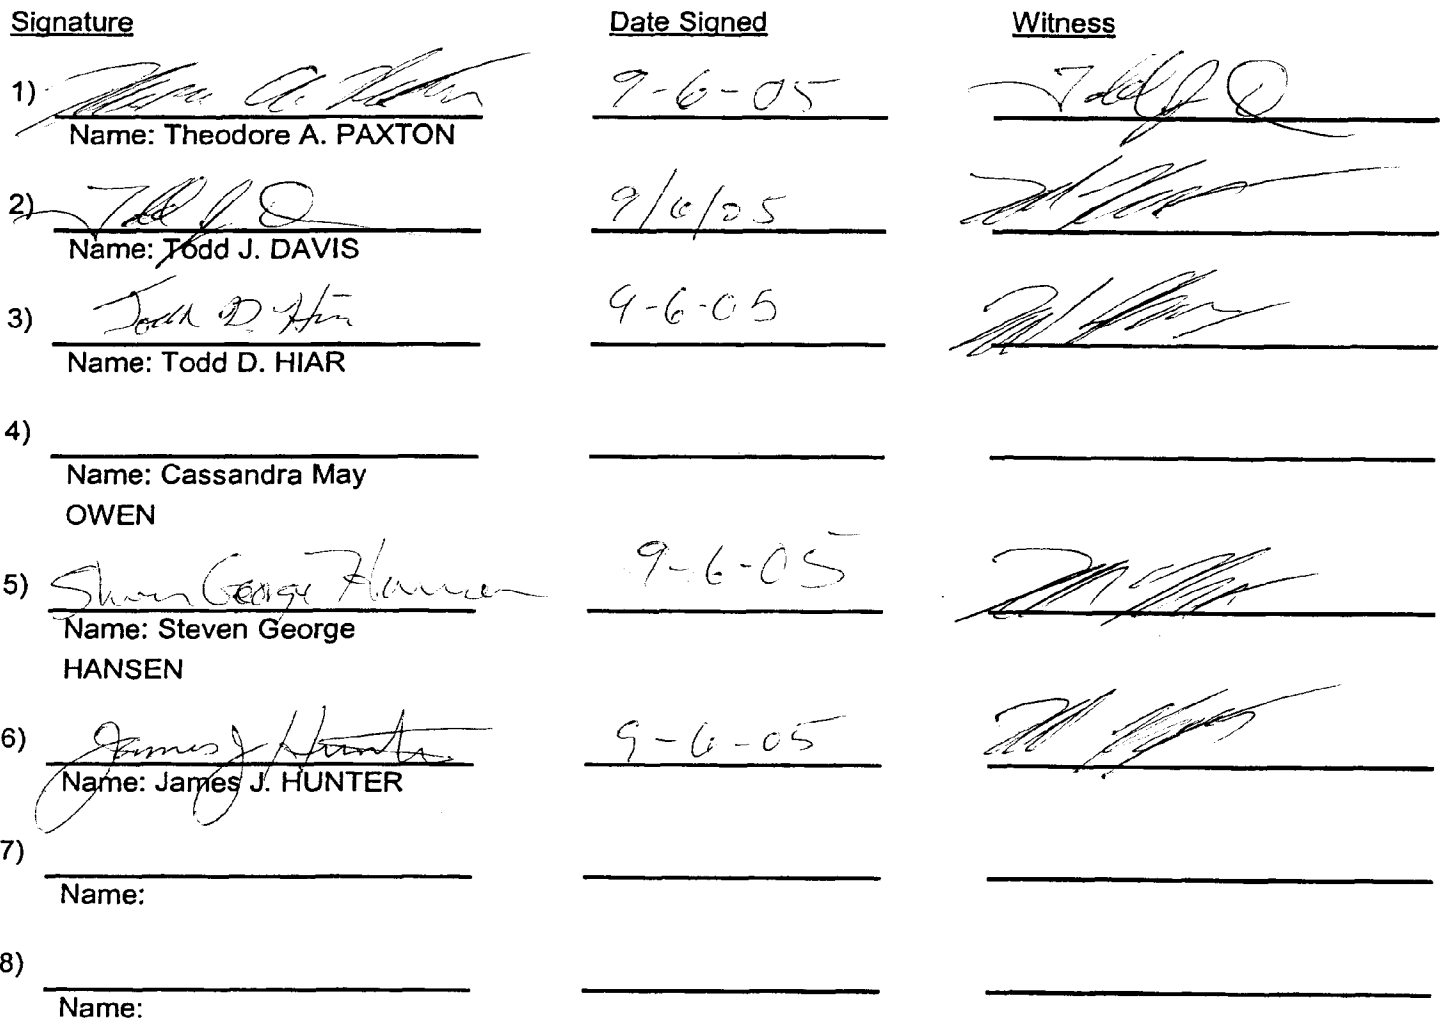 Signature Date Signed Witness
1) 9-6-05 Todd J. D
Name: Theodore A. PAXTON
2) Todd J. D 9/6/05
Name: Todd J. DAVIS
3) Todd D. Hiar 9-6-05
Name: Todd D. HIAR
4)
Name: Cassandra May
OWEN
5) Steven George Hansen 9-6-05
Name: Steven George
HANSEN
6) James J Hunter 9-6-05
Name: James J. HUNTER
7)
Name:
8)
Name: